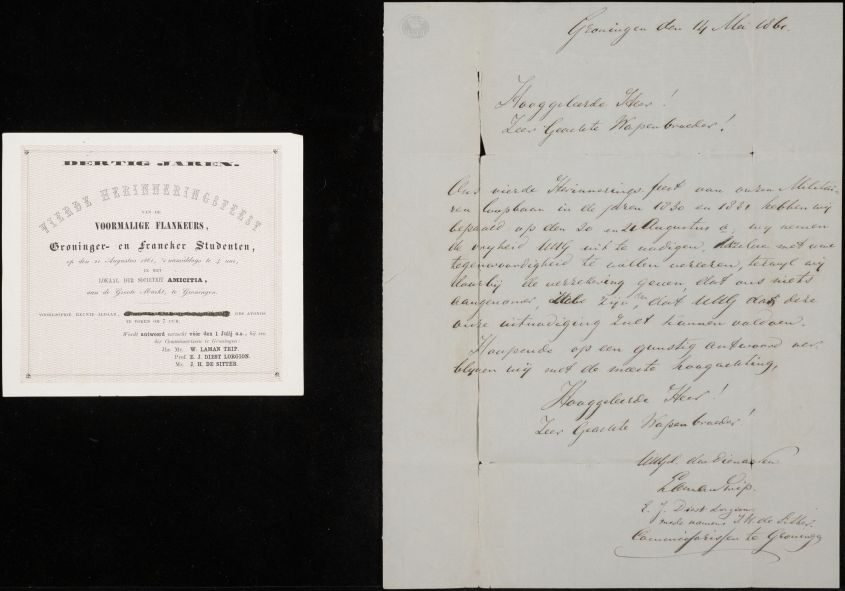 DERTIG JAREN.
VIERDE HERINNERINGSFEEST
VAN DE
VOORMALIGE FLANKEURS,
Groninger- en Franeker Studenten,
op den 21 Augustus 1861, 'snamiddags te 4 uur,
IN HET
LOKAAL DER SOCIETEIT AMICITIA,
aan de Groote Markt, te Groningen.
VOORLOOPIGE REUNIE ALDAAR, DES AVONDS
TE VOREN OM 7 UUR.
Wordt antwoord verzocht vóór den 1 Julij a.s., bij een
der Commissarissen te Groningen:
Jhr. Mr. W. LAMAN TRIP.
Prof. E. J. DIEST LORGION.
Mr. J. H. DE SITTER.
Groningen den 14 Mei 1861.
Hooggeleerde Heer!
Zeer Geachte Wapenbroeder!
Ons vierde Herinnerings feest van onzen Militai-
ren loopbaan in de jaren 1830 en 1831 hebben wij
bepaald op den 20 en 21 Augustus a. wij nemen
de vrijheid UHG uit te nodigen, met uwe
tegenwoordigheid te willen vereeren, terwyl wij
daarbij de verzekering geven, dat ons niets
aangenamer zijn, dat UHG deze
onze uitnodiging zult kunnen voldoen.
Hoopende op een gunstig antwoord ver-
blijven wij met de meeste hoogachting,
Hooggeleerde Heer!
Zeer Geachte Wapenbroeder!
UHGd. dw Dienaren
Laman Trip.
E. J. Diest Lorgion
mede namens J. H. de Sitter.
Commissarissen te Groningen